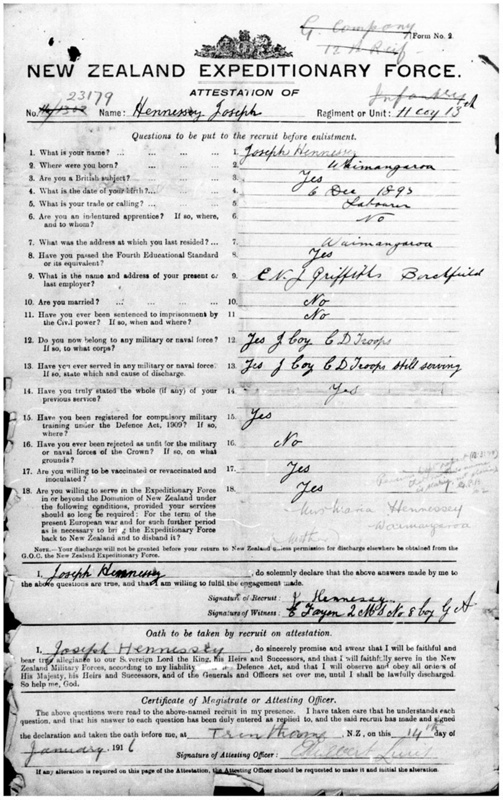 G. Company
12th Reinf
Form No. 2
NEW ZEALAND EXPEDITIONARY FORCE.
ATTESTATION OF
Infantry
23179
No. Name: Hennessy Joseph Regiment or Unit: 11 Coy 13th
Questions to be put to the recruit before enlistment.
1. What is your name? ... 1. Joseph Hennessy
2. Where were you born? 2. Waimangaroa
3. Are you a British subject? ... 3. Yes
4. What is the date of your birth? ... 4. 6 Dec 1893
5. What is your trade or calling? ... 5. Labourer
6. Are you an indentured apprentice? If so, where, 6. No
and to whom?
7. What was the address at which you last resided? ... 7. Waimangaroa
8. Have you passed the Fourth Educational Standard 8. Yes
or its equivalent?
9. What is the name and address of your present or 9. Griffiths
last employer?
10. Are you married? ... 10. No
11. Have you ever been sentenced to imprisonment by 11. No
the Civil power? If so, when and where?
12. Do you now belong to any military or naval force? 12. Yes J Coy C D Troops
If so, to what corps?
13. Have you ever served in any military or naval force? 13. Yes J Coy C D Troops still serving
If so, state which and cause of discharge.
14. Have you truly stated the whole (if any) of your 14. Yes
previous service?
15. Have you been registered for compulsory military 15. Yes
training under the Defence Act, 1909? If so,
where?
16. Have you ever been rejected as unfit for the military 16. No
or naval forces of the Crown? If so, on what
grounds?
17. Are you willing to be vaccinated or revaccinated and 17. Yes
inoculated?
18. Are you willing to serve in the Expeditionary Force 18. Yes
in or beyond the Dominion of New Zealand under
the following conditions, provided your services
should so long be required: For the term of the
present European war and for such further period
as is necessary to bring the Expeditionary Force
back to New Zealand and to disband it?
Mrs Maria Hennessey
Waimangaroa
NOTE.—Your discharge will not be granted before your return to New Zealand unless permission for discharge elsewhere be obtained from the
G.O.C. the New Zealand Expeditionary Force.
I, Joseph Hennessy, do solemnly declare that the above answers made by me to
the above questions are true, and that I am willing to fulfil the engagement made.
Signature of Recruit: J Hennessy
Signature of Witness:
Oath to be taken by recruit on attestation.
I, Joseph Hennessey, do sincerely promise and swear that I will be faithful and
bear true allegiance to our Sovereign Lord the King, his Heirs and Successors, and that I will faithfully serve in the
New Zealand Military Forces, according to my liability Defence Act, and that I will observe and obey all orders of
His Majesty, his Heirs and Successors, and of the Generals and Officers set over me, until I shall be lawfully discharged.
So help me, God.
Certificate of Magistrate or Attesting Officer.
The above questions were read to the above-named recruit in my presence. I have taken care that he understands each
question, and that his answer to each question has been duly entered as replied to, and the said recruit has made and signed
the declaration and taken the oath before me, at Trentham, N.Z., on this 14th day of
January, 1916
Signature of Attesting Officer:
If any alteration is required on this page of the Attestation, the Attesting Officer should be requested to make it and initial the alteration.